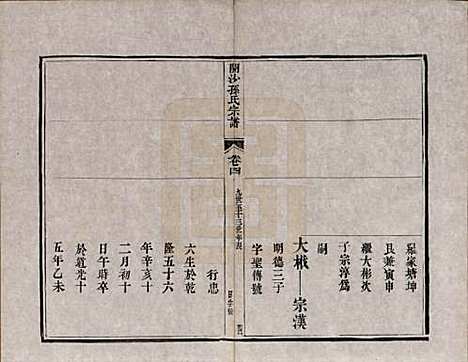 屋家塘坤
艮兼寅申
繼大彬次
子宗淳為
嗣
大椒 宗漢
明德三子
字聖傳號
行忠
六生於乾
隆五十六
年辛亥十
二月初十
日午時卒
於道光十
五年乙未
蘭沙孫氏宗譜
卷四
九世至十三世年表